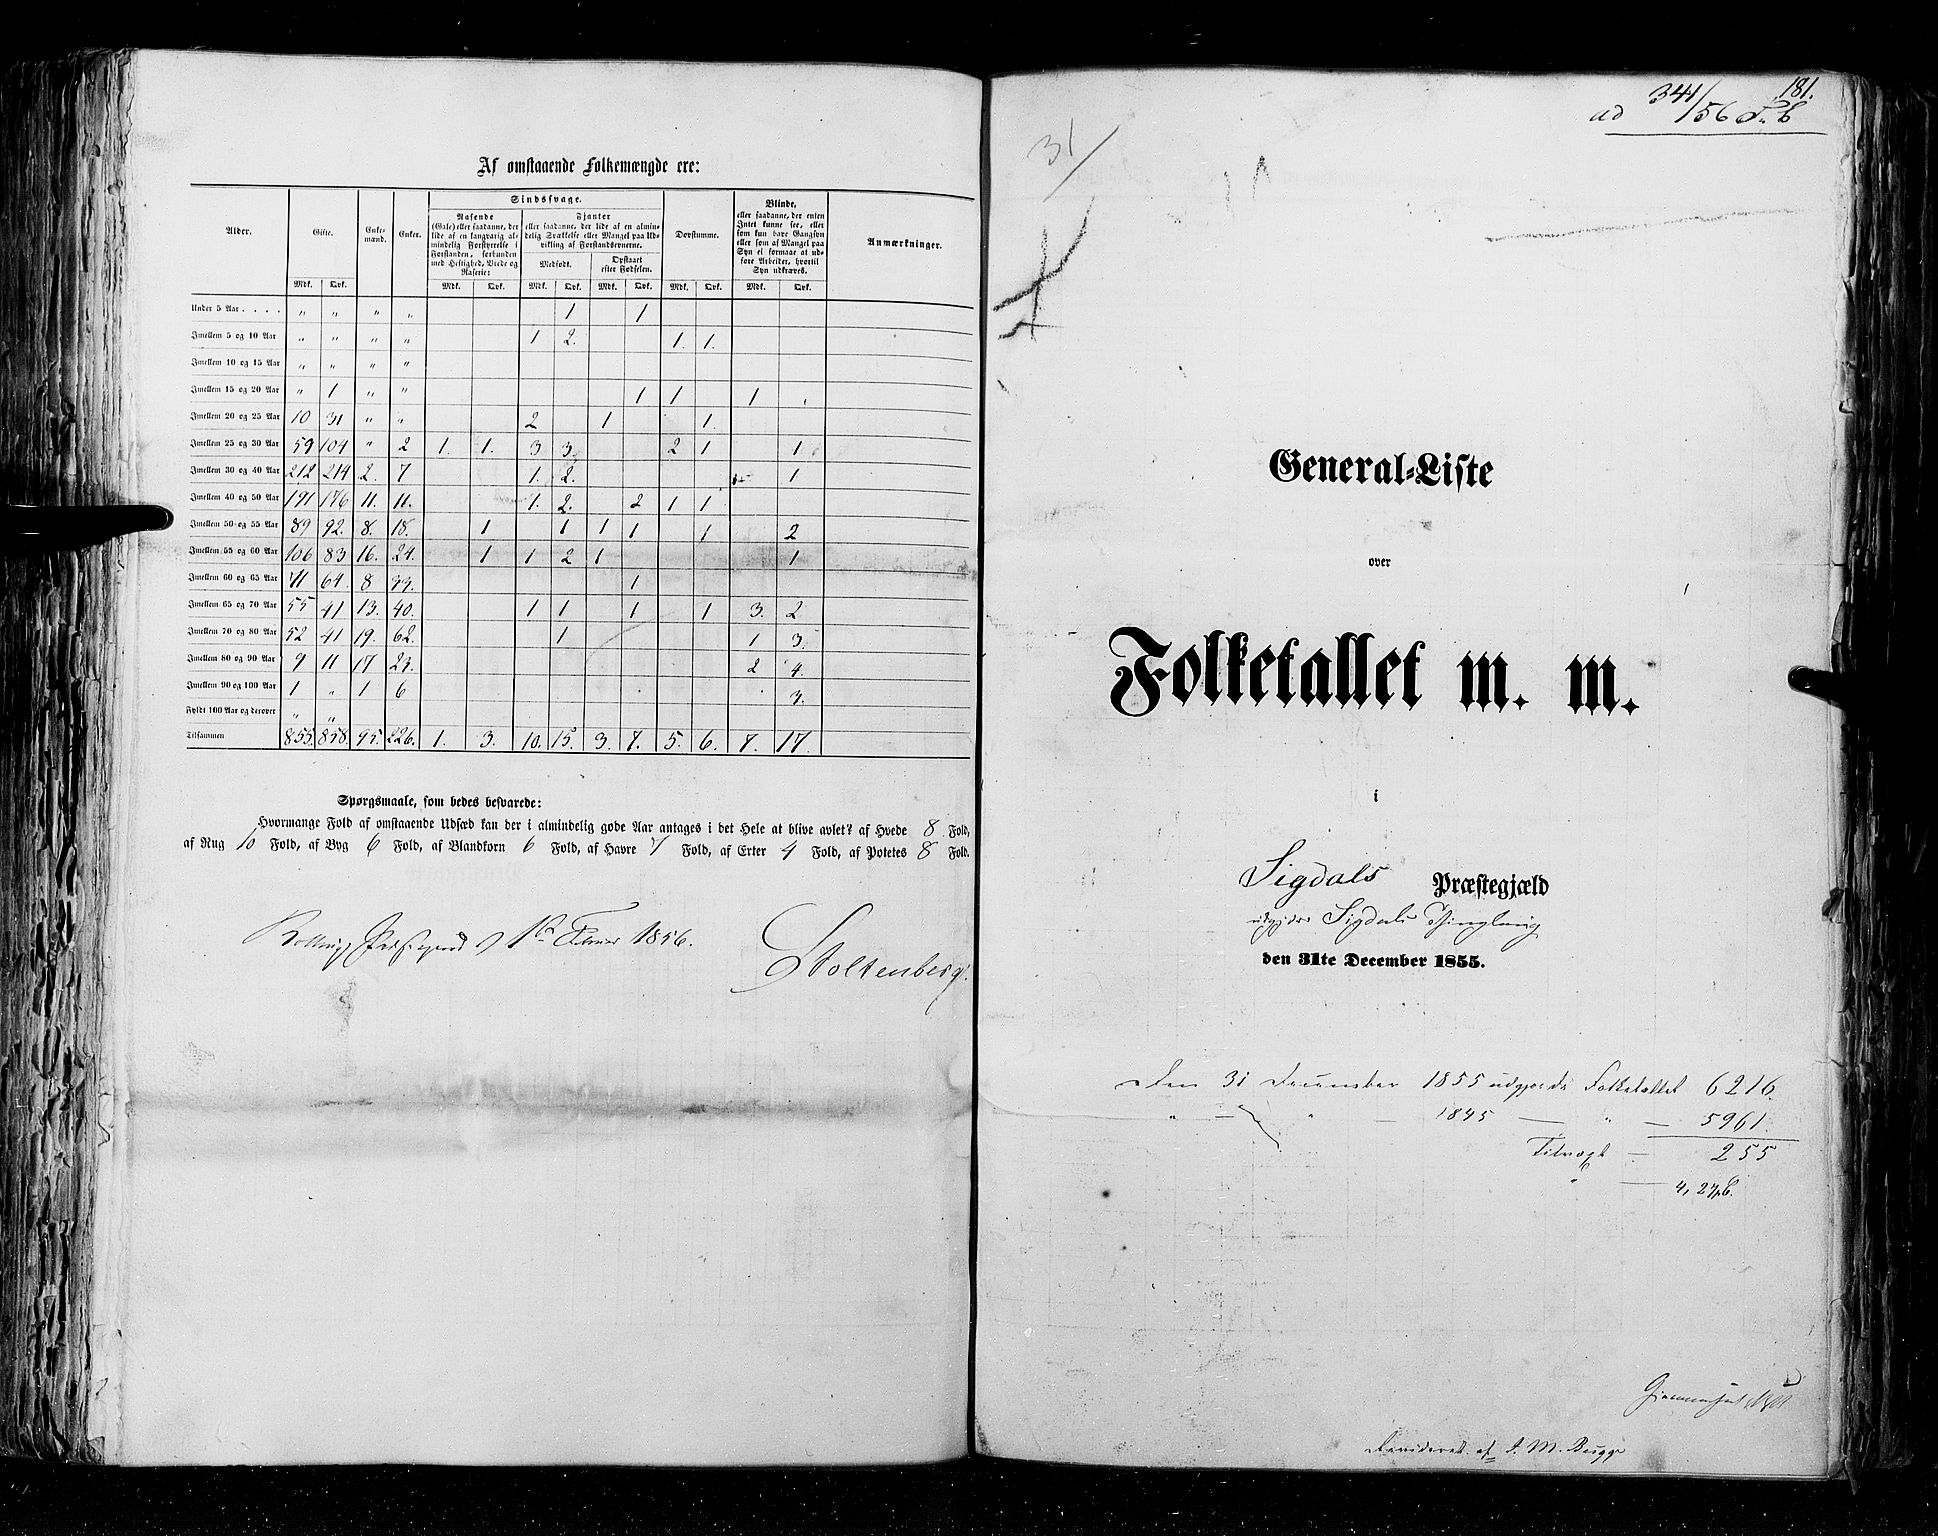 Af omstaaende Folkemængde ere:
Alder. Gifte. Enkemænd. Enker. Sindssvage. Døvstumme. Blinde, eller saadanne, der enten Intet kunne see, eller som kun have Gangsyn eller som af Mangel paa Syn ei formaae at udføre Arbeider, hvortil Syn udkræves. Anmærkninger.
Rasende (Gale) eller saadanne, der lide af en langvarig almindelig Forstyrrelse i Forstanden, forbunden med Heftighed, Vrede og Raserie:
Fjanter eller saadanne, der lide af en almindelig Svækkelse eller Mangel paa Udvikling af Forstandsevnerne.
Medfødt. Opstaaet efter Fødselen.
Mdk. Qvk. Mdk. Qvk. Mdk. Qvk. Mdk. Qvk. Mdk. Qvk. Mdk. Qvk.
Under 5 Aar . . . . " " " " 1 1
Imellem 5 og 10 Aar " " " " 1 2. 1. 1.
Imellem 10 og 15 Aar " " " "
Imellem 15 og 20 Aar " 1 " " 1 1 1
Imellem 20 og 25 Aar 10 31 " " 2 1 1.
Imellem 25 og 30 Aar 59 104 " 2 1. 1. 3 3. 2 1 1
Imellem 30 og 40 Aar 212 214 2. 7 1. 2. 1
Imellem 40 og 50 Aar 191 176 11. 11. 1. 2. 2 1 1
Imellem 50 og 55 Aar 89 92. 8. 18. 1 1 1 1 1 2
Imellem 55 og 60 Aar 106 83 16. 24. 1 1 2 1 1
Imellem 60 og 65 Aar 71 64. 8 1
Imellem 65 og 70 Aar 55 41 13. 40. 1 1 1 1 3. 2
Imellem 70 og 80 Aar 52 41 19. 62. 1 1 3.
Imellem 80 og 90 Aar 9 11 17 23. 2 4.
Imellem 90 og 100 Aar 1 " 1 6 3.
Fyldt 100 Aar og derover " "
Tilsammen 855. 858. 95. 226. 1. 3. 10. 15. 3. 7. 5. 6. 7. 17.
Spørgsmaale, som bedes besvarede:
Hvormange Fold af omstaaende Udsæd kan der i almindelig gode Aar antages i det Hele at blive avlet? af Hvede 8 Fold,
af Rug 10 Fold, af Byg 6 Fold, af Blandkorn 6 Fold, af Havre 7 Fold, af Erter 4 Fold, af Potetes 8 Fold.
1856.
Stoltenberg.
181.
ad 341/56
31/
General-Liste
over
Folketallet m. m.
i
Sigdals Præstegjæld
Sigdals Thinglaug
den 31te December 1855.
Den 31 December 1855 udgjorde Folketallet 6216.
" — " — 1845 — " — 5961.
Tilvæxt — 255
" — 4,27
Revideret af J. M. Bugge